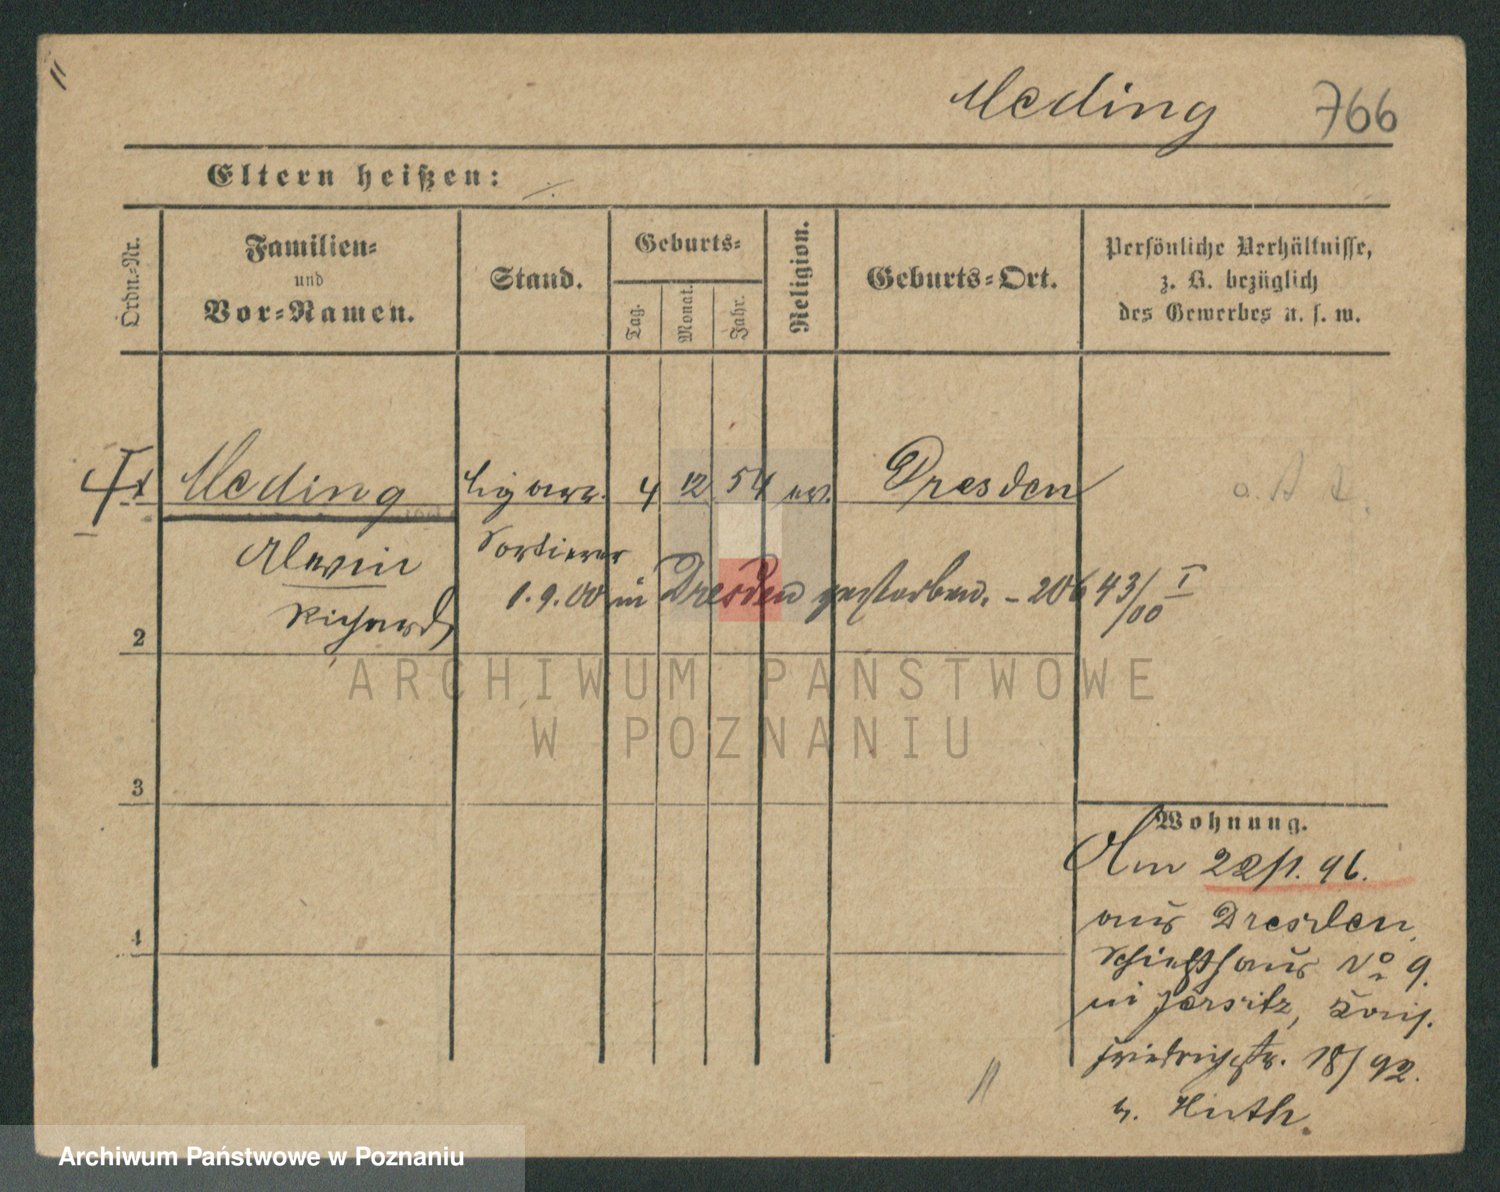 Meding 766
Eltern heißen:
Ordn.-Nr.
Familien-
und
Vor-Namen.
Stand.
Geburts-
Tag.
Monat.
Jahr.
Religion.
Geburts-Ort.
Persönliche Verhältnisse,
z. B. bezüglich
des Gewerbes u. s. w.
Meding Cigarr. 4 12 54 ev. Dresden
Sortierer
Alwin
Richard
1.9.00 in Dresden gestorben. - 20643/00 I
2
3
4
Wohnung.
Am 22/1. 96.
aus Dresden,
Schießhaus No 9.
in Jersitz,
Friedrichstr. 18/92.
b. Huth.
ARCHIWUM PAŃSTWOWE
W POZNANIU
Archiwum Państwowe w Poznaniu